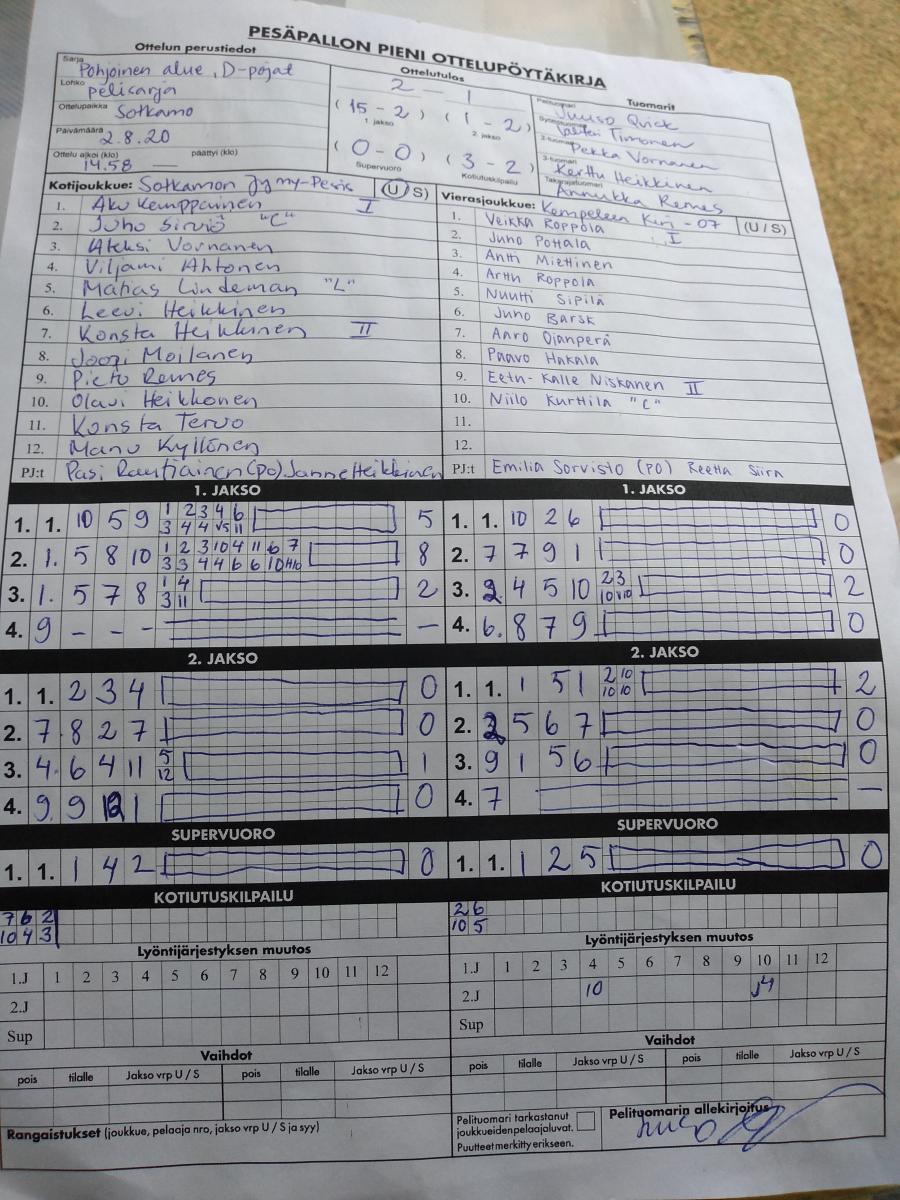 PESÄPALLON PIENI OTTELUPÖYTÄKIRJA
Ottelun perustiedot
Sarja Pohjoinen alue, D-pojat
Lohko pelisarja
Ottelupaikka Sotkamo
Päivämäärä 2.8.20
Ottelu alkoi (klo) päättyi (klo)
14.58 —
Ottelutulos
2 - 1
(15 - 2) (1 - 2)
1. jakso 2. jakso
(0 - 0) (3 - 2)
Supervuoro Kotiutuskilpailu
Tuomarit
Pelituomari Juuso Quick
Syöttötuomari Valtteri Timonen
2-tuomari Pekka Vornanen
3-tuomari Kerttu Heikkinen
Takarajatuomari Annukka Remes
Kotijoukkue: Sotkamon Jymy-Pesis (U/S)
1. Aku Kemppainen I
2. Juho Sirviö "C"
3. Aleksi Vornanen
4. Viljami Ahtonen
5. Matias Lindeman "L"
6. Leevi Heikkinen
7. Konsta Heikkinen II
8. Joopi Moilanen
9. Pieto Remes
10. Olavi Heikkonen
11. Konsta Tervo
12. Manu Kyllönen
PJ:t Pasi Rautiainen (po) Janne Heikkinen
Vierasjoukkue: Kempeleen Kiri -07 (U / S)
1. Veikka Roppola I
2. Juho Pottala
3. Antti Miettinen
4. Arttu Roppola
5. Nuutti Sipilä
6. Juho Barsk
7. Aaro Ojanperä
8. Paavo Hakala
9. Eetu-Kalle Niskanen II
10. Niilo Kurttila "C"
11.
12.
PJ:t Emilia Sorvisto (PO) Reetta Siira
1. JAKSO
1. 1. 10 5 9 1 2 3 4 6 5
3 4 4 v5 11
2. 1. 5 8 10 1 2 3 10 4 11 6 7 8
3 3 4 4 6 6 10
3. 1. 5 7 8 1 4 2
3 11
4. 9 - - - —
1. JAKSO
1. 1. 10 2 6 0
2. 7 7 9 1 0
3. 2. 4 5 10 2 3 2
10 v10
4. 6. 8 7 9 0
2. JAKSO
1. 1. 2 3 4 0
2. 7. 8 2 7 0
3. 4. 6 4 11 5 1
12
4. 9. 9 12 1 0
2. JAKSO
1. 1. 1 5 1 2 10 2
10 10
2. 5 6 7 0
3. 9 1 5 6 0
4. 7 —
SUPERVUORO
1. 1. 1 4 2 0
SUPERVUORO
1. 1. 1 2 5 0
KOTIUTUSKILPAILU
7 6 2
10 4 3
KOTIUTUSKILPAILU
2 6
10 5
Lyöntijärjestyksen muutos
1.J 1 2 3 4 5 6 7 8 9 10 11 12
2.J
Sup
Lyöntijärjestyksen muutos
1.J 1 2 3 4 5 6 7 8 9 10 11 12
2.J 10 J4
Sup
Vaihdot
pois tilalle Jakso vrp U / S pois tilalle Jakso vrp U / S
Vaihdot
pois tilalle Jakso vrp U / S pois tilalle Jakso vrp U / S
Rangaistukset (joukkue, pelaaja nro, jakso vrp U / S ja syy)
Pelituomari tarkastanut
joukkueiden pelaajaluvat.
Puutteet merkitty erikseen.
Pelituomarin allekirjoitus